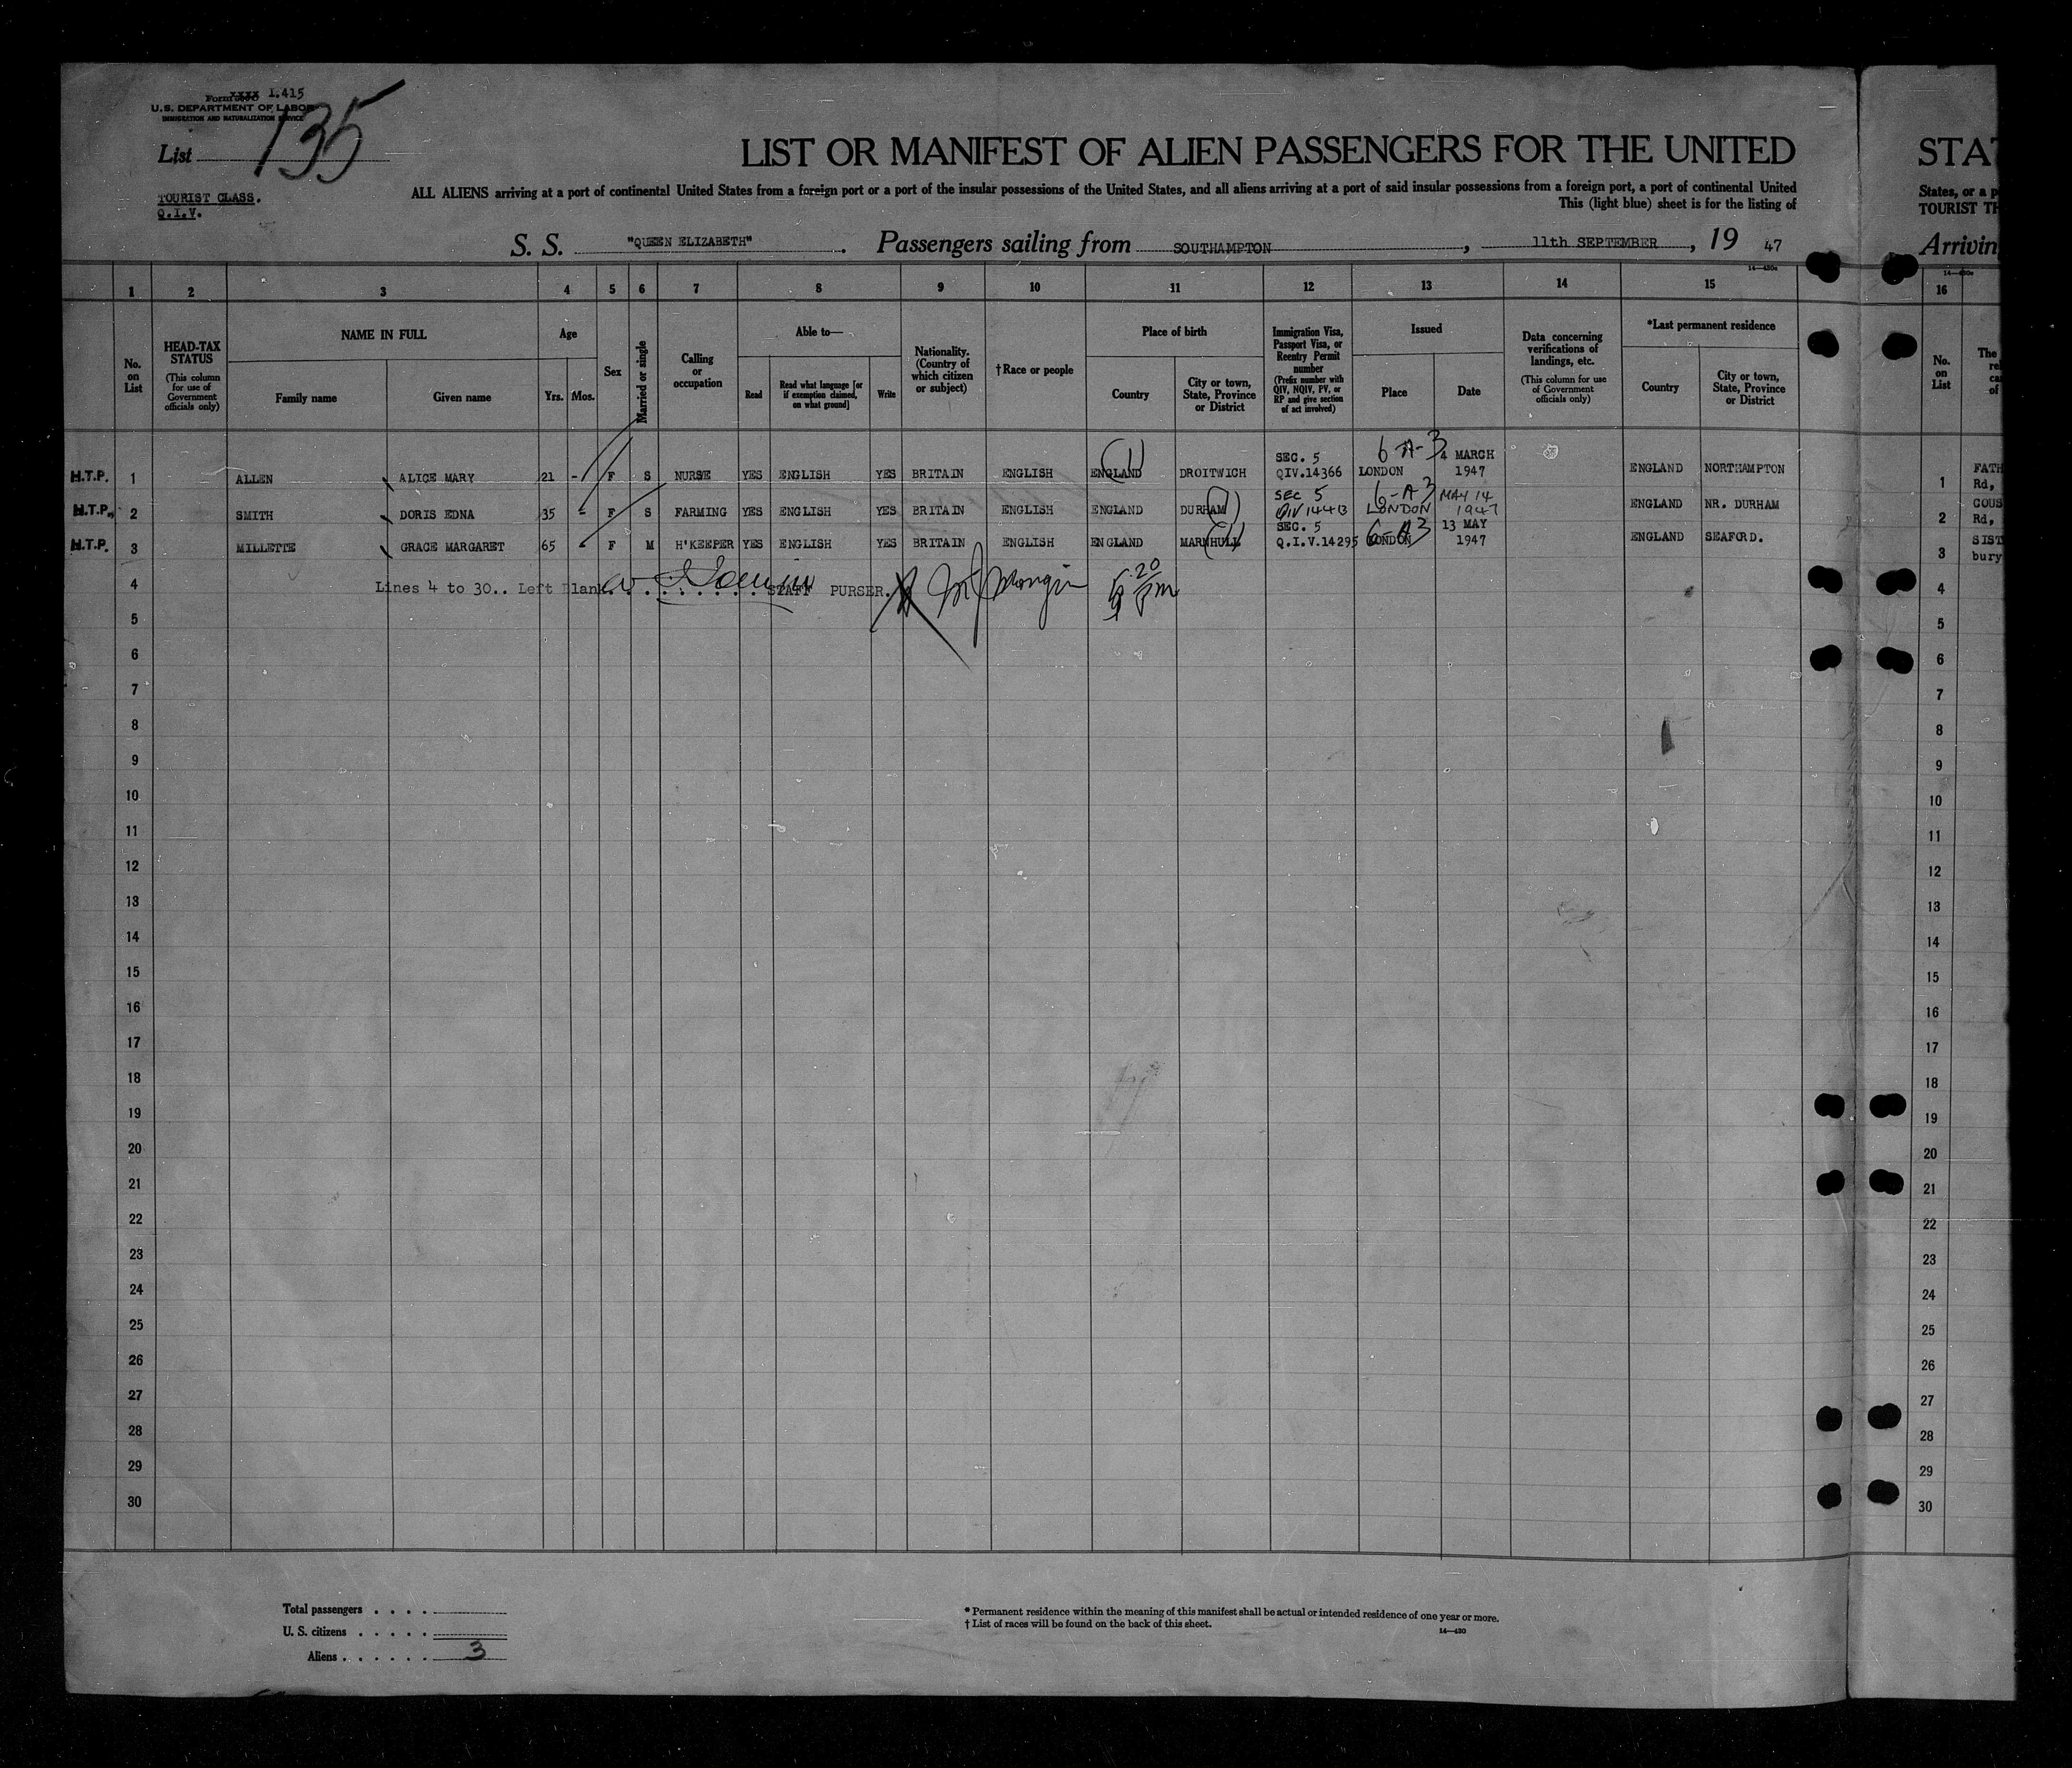 Form XXXX I.415
U.S. DEPARTMENT OF LABOR
IMMIGRATION AND NATURALIZATION SERVICE
List 135
TOURIST CLASS.
Q.I.V.
LIST OR MANIFEST OF ALIEN PASSENGERS FOR THE UNITED
ALL ALIENS arriving at a port of continental United States from a foreign port or a port of the insular possessions of the United States, and all aliens arriving at a port of said insular possessions from a foreign port, a port of continental United
This (light blue) sheet is for the listing of
S. S. "QUEEN ELIZABETH". Passengers sailing from SOUTHAMPTON, 11th SEPTEMBER, 19 47
STAT
States, or a p
TOURIST TH
Arrivin
14—430a
1 2 3 4 5 6 7 8 9 10 11 12 13 14 15 16
No. on List
HEAD-TAX STATUS (This column for use of Government officials only)
NAME IN FULL
Family name
Given name
Age
Yrs. Mos.
Sex
Married or single
Calling or occupation
Able to—
Read
Read what language [or if exemption claimed, on what ground]
Write
Nationality. (Country of which citizen or subject)
†Race or people
Place of birth
Country
City or town, State, Province or District
Immigration Visa, Passport Visa, or Reentry Permit number (Prefix number with QIV, NQIV, PV, or RP and give section of act involved)
Issued
Place
Date
Data concerning verifications of landings, etc. (This column for use of Government officials only)
*Last permanent residence
Country
City or town, State, Province or District
No. on List
The
H.T.P. 1 ALLEN ALICE MARY 21 - F S NURSE YES ENGLISH YES BRITAIN ENGLISH ENGLAND DROITWICH SEC. 5 QIV.14366 LONDON 6 A-3 4 MARCH 1947 ENGLAND NORTHAMPTON 1 FATH Rd,
H.T.P. 2 SMITH DORIS EDNA 35 - F S FARMING YES ENGLISH YES BRITAIN ENGLISH ENGLAND DURHAM SEC 5 LONDON 6-A3 MAY 14 1947 ENGLAND NR. DURHAM 2 COUS Rd,
H.T.P. 3 MILLETTE GRACE MARGARET 65 - F M H'KEEPER YES ENGLISH YES BRITAIN ENGLISH ENGLAND MARNHULL SEC. 5 Q.I.V.14295 LONDON 6 A3 13 MAY 1947 ENGLAND SEAFORD. 3 SIST bury
4 Lines 4 to 30.. Left Blank. STAFF PURSER. 5 20 pm 4
5 5
6 6
7 7
8 8
9 9
10 10
11 11
12 12
13 13
14 14
15 15
16 16
17 17
18 18
19 19
20 20
21 21
22 22
23 23
24 24
25 25
26 26
27 27
28 28
29 29
30 30
Total passengers . . . .
U. S. citizens . . . . .
Aliens . . . . . . 3
* Permanent residence within the meaning of this manifest shall be actual or intended residence of one year or more.
† List of races will be found on the back of this sheet.
14—430